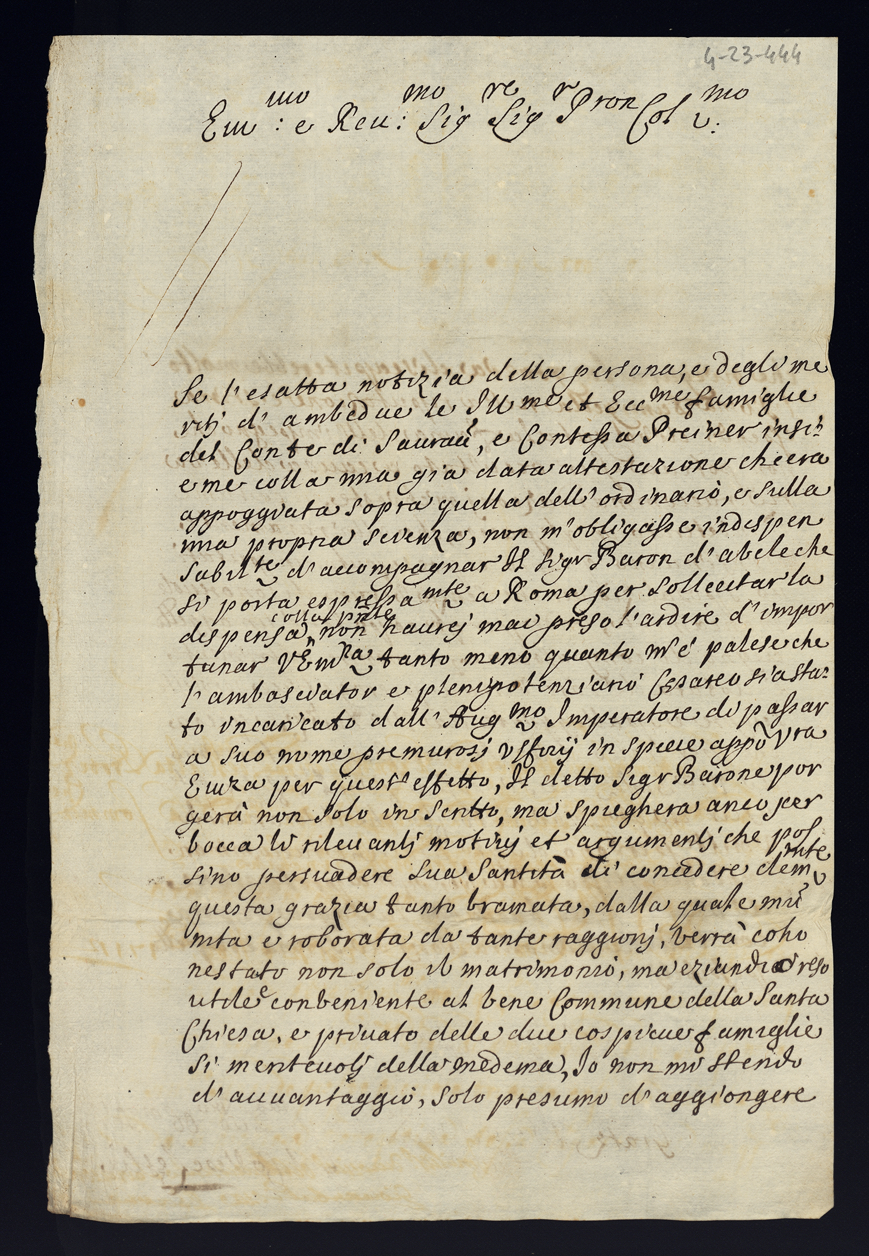 4-23-444
Em:mo e Reu:mo Sigre Sigr Pron Colmo
Se l'esatta notizia della persona, e degli me
ritj d'ambedue le Illme et Eccme famiglie
del Conte di Saurau, e Contessa Preiner insi:
eme colla mia già data attestazione che era
appoggiata sopra quella dell'ordinario, e sulla
mia propria scienza, non m'obligasse indispen
sabilte d'accompagnar Il sigr Baron d'abele che
si porta espressamte a Roma per sollecitar la
dispensa, colla pnte non haurej mai preso l'ardire d'impor
tunar VEmza tanto meno quanto m'è palese che
l'ambasciator e plenipotenziario Cesareo sia sta:
to incaricato dall'Augmo Imperatore di passar
a suo nome premurosj uffizij in specie appo Vra
Emza per quest'effetto, Il detto Sigr Barone por
gerà non solo in scritto, ma spieghera anco per
bocca li rileuantj motivij et argumentj che pos
sino persuadere Sua Santità di concedere clemmte
questa grazia tanto bramata, dalla quale mu
nita e roborata da tante raggionj, verrà coho
nestato non solo il matrimonio, ma eziandio reso
utile e conveniente al bene Commune della Santa
Chiesa, e priuato delle due cospicue famiglie
si meriteuolj della medema, Io non mi stendo
d'auuantaggio, solo presumo d'aggiongere